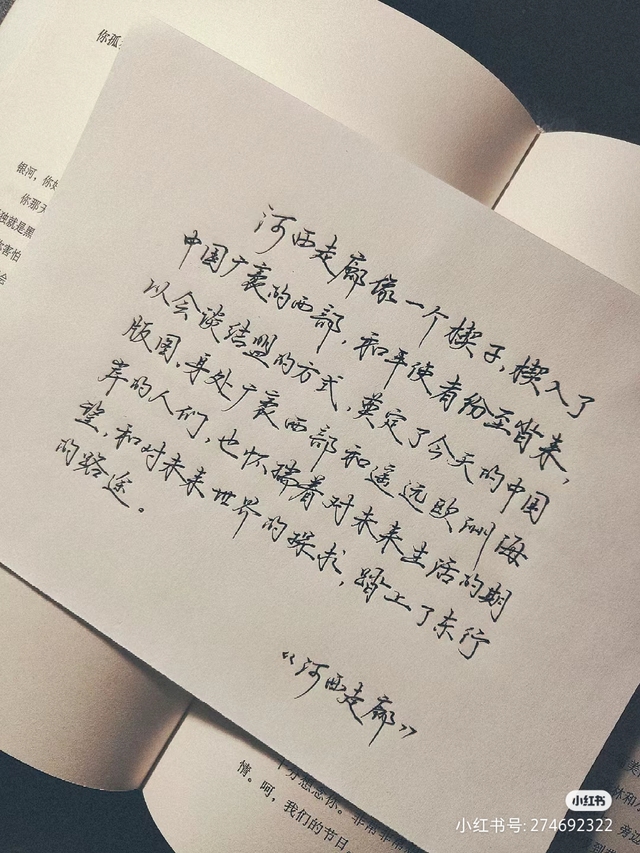 你孤
银河，你
你那
独就是黑
害怕
河西走廊像一个楔子，楔入了
中国广袤的西部，和平使者份至沓来，
以会谈结盟的方式，奠定了今天的中国
版图，身处广袤西部和遥远欧洲海
岸的人们，也怀揣着对未来生活的期
望，和对未来世界的探求，踏上了东行
的路途。
《河西走廊》
十分想念你。非常非常
情。呵，我们的节日。
林和
旁边
小红书
小红书号: 274692322